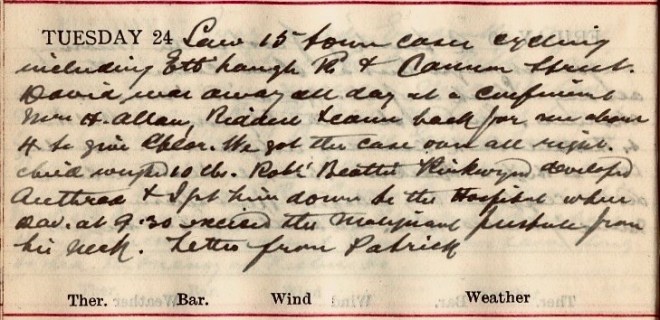 TUESDAY 24 Saw 15 town cases cycling
including Ett haugh Rd & Cannon Street.
David was away all day at a confinement
Mrs H. Allan, Riddell & came back for me about
4 to give Chlor. We got the case over all right.
child weighed 10 lbs. Robt Beattie developed
Anthrax & I got him down to the Hospital where
Dav. at 9.30 excised the Malignant pustule from
his neck. Letter from Patrick
Ther. Bar. Wind Weather